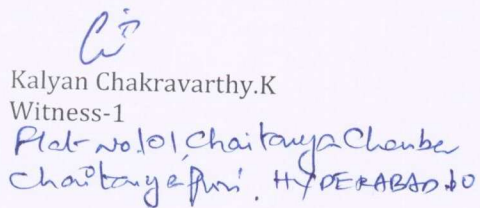 Kalyan Chakravarthy.K
Witness-1
Flat No.101, Chaitanya Chamber
Chaitanyapuri. HYDERABAD.60